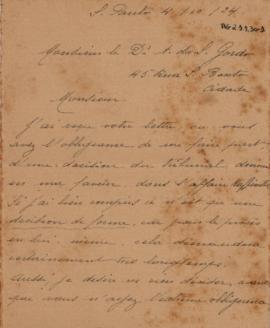 S. Paulo 4/10/24
Monsieur le Dr A. de S. Gordo
45 Rua S. Bento
Cidade
Monsieur
J'ai reçu votre lettre où vous
avez l'obligeance de me faire part
d'une décision du Tribunal donnée
en ma faveur dans l'affaire
Si j'ai bien compris ce n'est qu'une
décision de forme, car pour le procès
en lui même, cela demandera
certainement très longtemps.
Aussi je désire
que vous n'ayez l'extrême obligeance